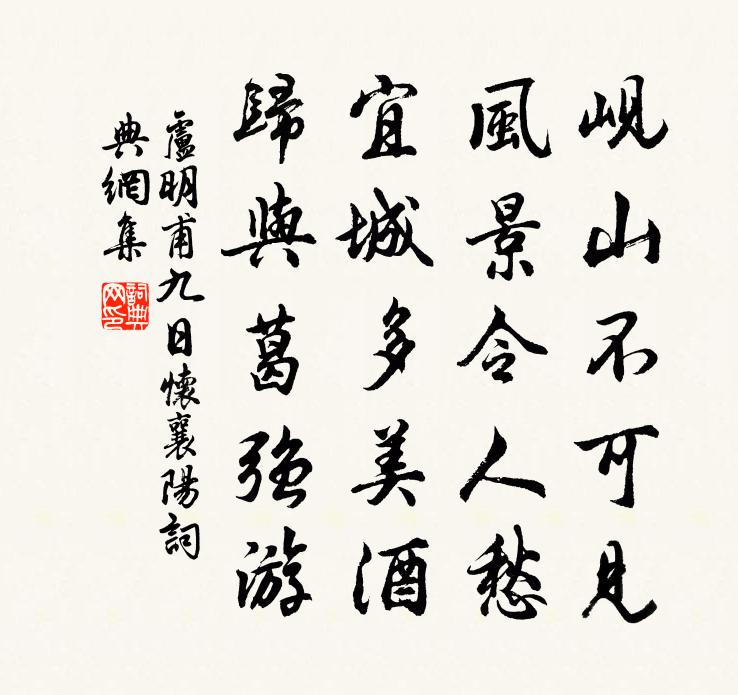 峴山不可見
風景令人愁
宜城多美酒
歸與葛強游
盧明甫九日懷襄陽詞
典網集
詞典網印